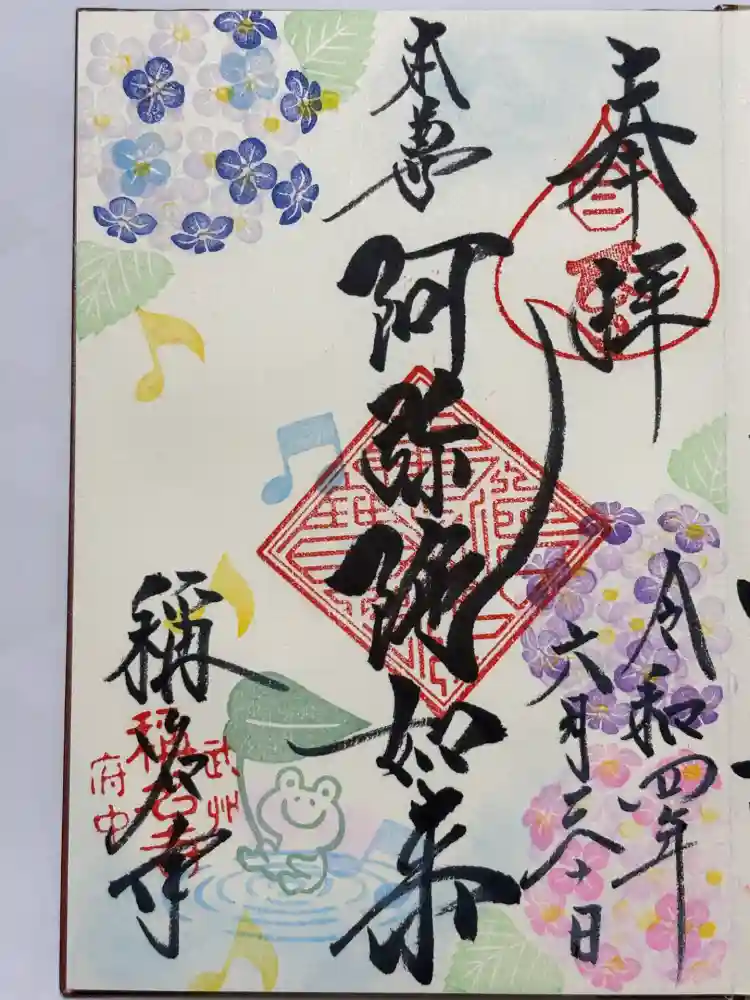 奉拝
令和四年
六月三十日
本尊
阿弥陀如来
稱名寺
武州
稱名寺
府中